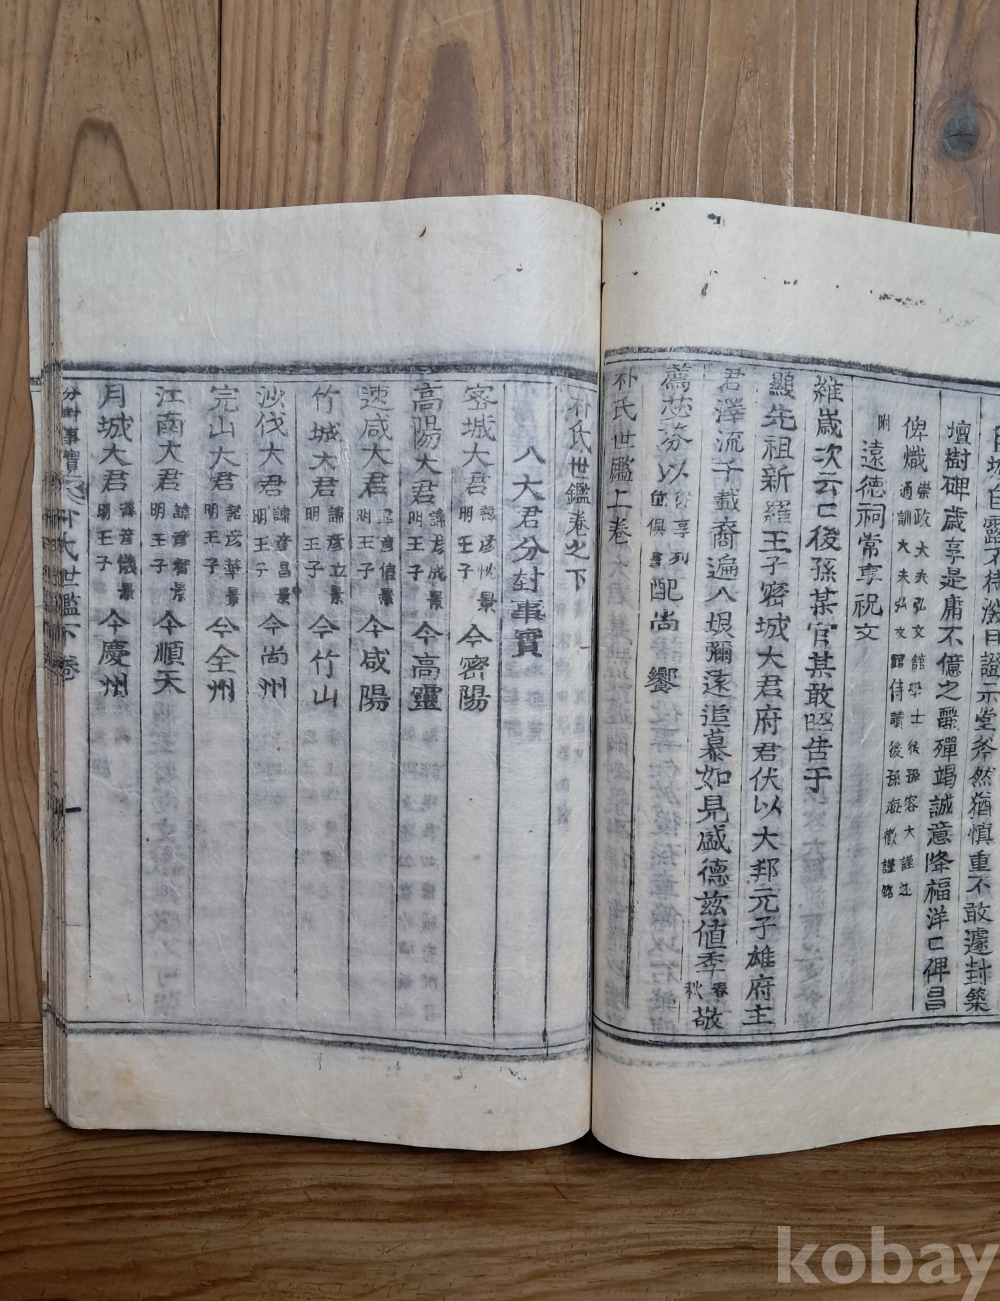 壇樹碑歲享是庸不億之罰殫竭誠意降福洋〻碑昌
俾熾 崇政大夫弘文館學士後孫容大謹述
通訓大夫弘文館侍讀後孫海徹謹
附 遠德祠常享祝文
維歲次云〻後孫某官某敢昭告于
顯先祖新羅王子密城大君府君伏以大邦元子雄府主
君澤流千載裔遍八垠彌遠追慕如見盛德茲值季春秋敬
薦苾芬以 配尚 饗
朴氏世鑑上卷
朴氏世鑑卷之下
八大君分封事實
密城大君 諱彦忱景明王子 今密陽
高陽大君 諱彦成景明王子 今高靈
速咸大君 諱彦信景明王子 今咸陽
竹城大君 諱彦立景明王子 今竹山
沙伐大君 諱彦昌景明王子 今尚州
完山大君 諱彦華景明王子 今全州
江南大君 諱彦智景明王子 今順天
月城大君 諱彦儀景明王子 今慶州
分封事實 朴氏世鑑下卷 一
kobay